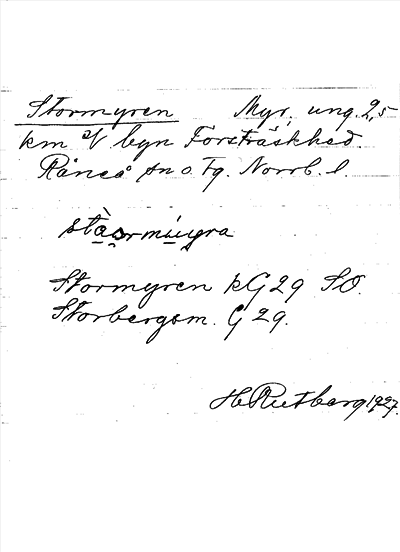 Stormyren Myr, ung. 2,5
km av byn Forsträskhed.
Råneå sn o. Tg. Norrb. l.
Stormyren kG29 SO.
Storbergsm. G 29.
H Rutberg 1927.